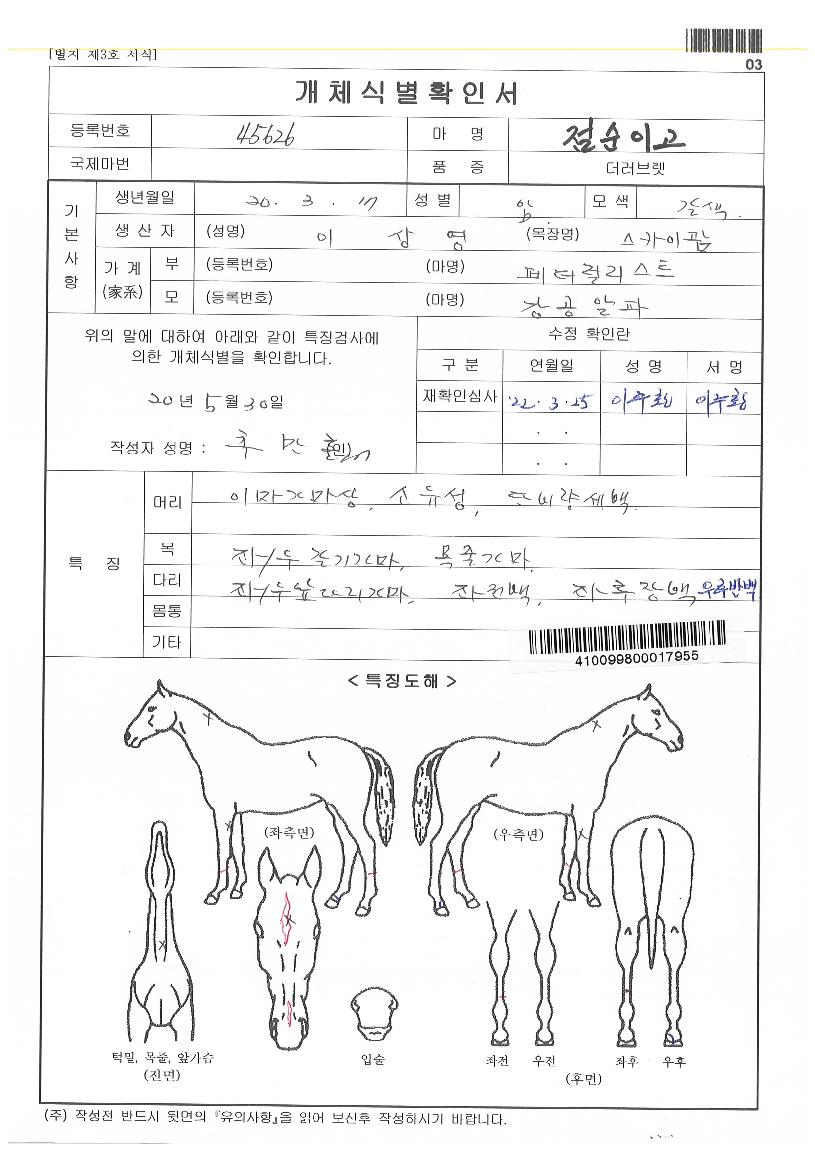 [별지 제3호 서식]
03
개체식별확인서
등록번호 45626 마 명 점순이고
국제마번 품 종 더러브렛
기본사항
생년월일 20. 3. 17 성별 암 모색 갈색.
생산자 (성명) 이상영 (목장명) 스카이팜
가계 (家系) 부 (등록번호) (마명) 페더럴리스트
모 (등록번호) (마명) 창공알파
위의 말에 대하여 아래와 같이 특징검사에
의한 개체식별을 확인합니다.
20년 5월 30일
작성자 성명 : 추 만 (인)
수정 확인란
구분 연월일 성명 서명
재확인심사 '22. 3. 25
. .
. .
특 징
머리 이마가마상, 소유성, 비량세백
목 좌/우줄기가마, 목줄가마,
다리 좌/우앞다리가마, 좌전백, 좌후장백 우후반백
몸통
기타
410099800017955
< 특징도해 >
(좌측면) (우측면)
턱밑, 목줄, 앞가슴 입술 좌전 우전 좌후 우후
(전면) (후면)
(주) 작성전 반드시 뒷면의 『유의사항』을 읽어 보신후 작성하시기 바랍니다.